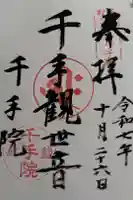 奉拝
令和七年
十月二十六日
千手観世音
千手院
千手院